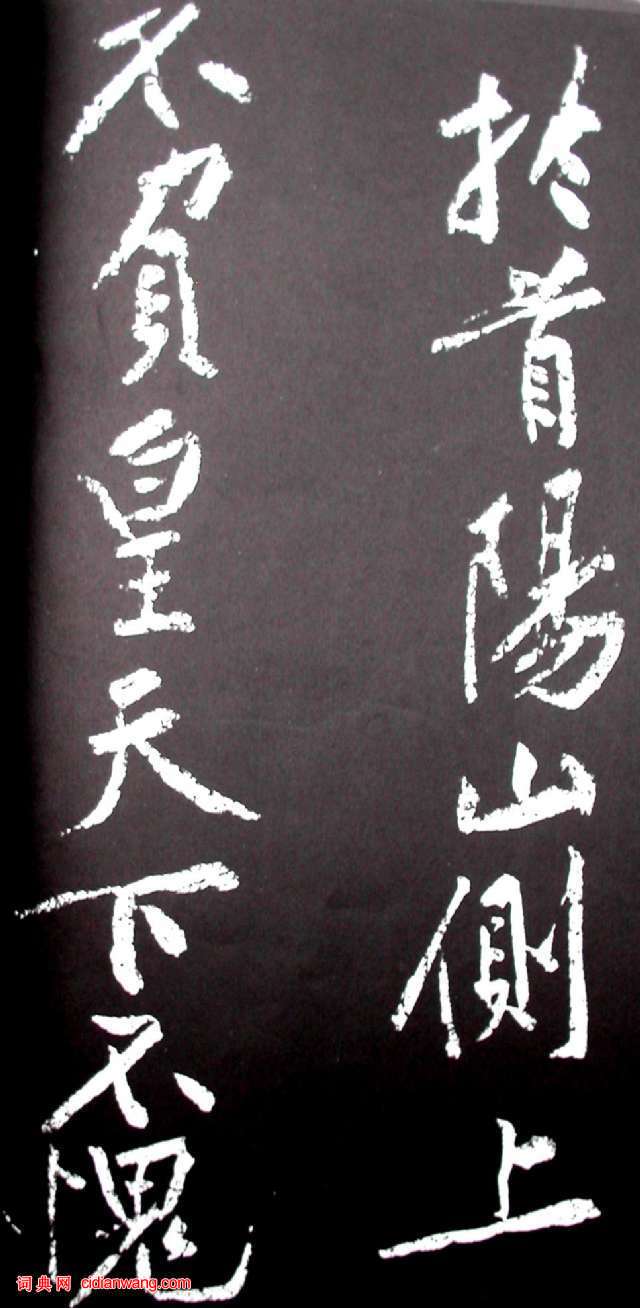 扵首陽山側上
不負皇天下不愧
词典网 cidianwang.com